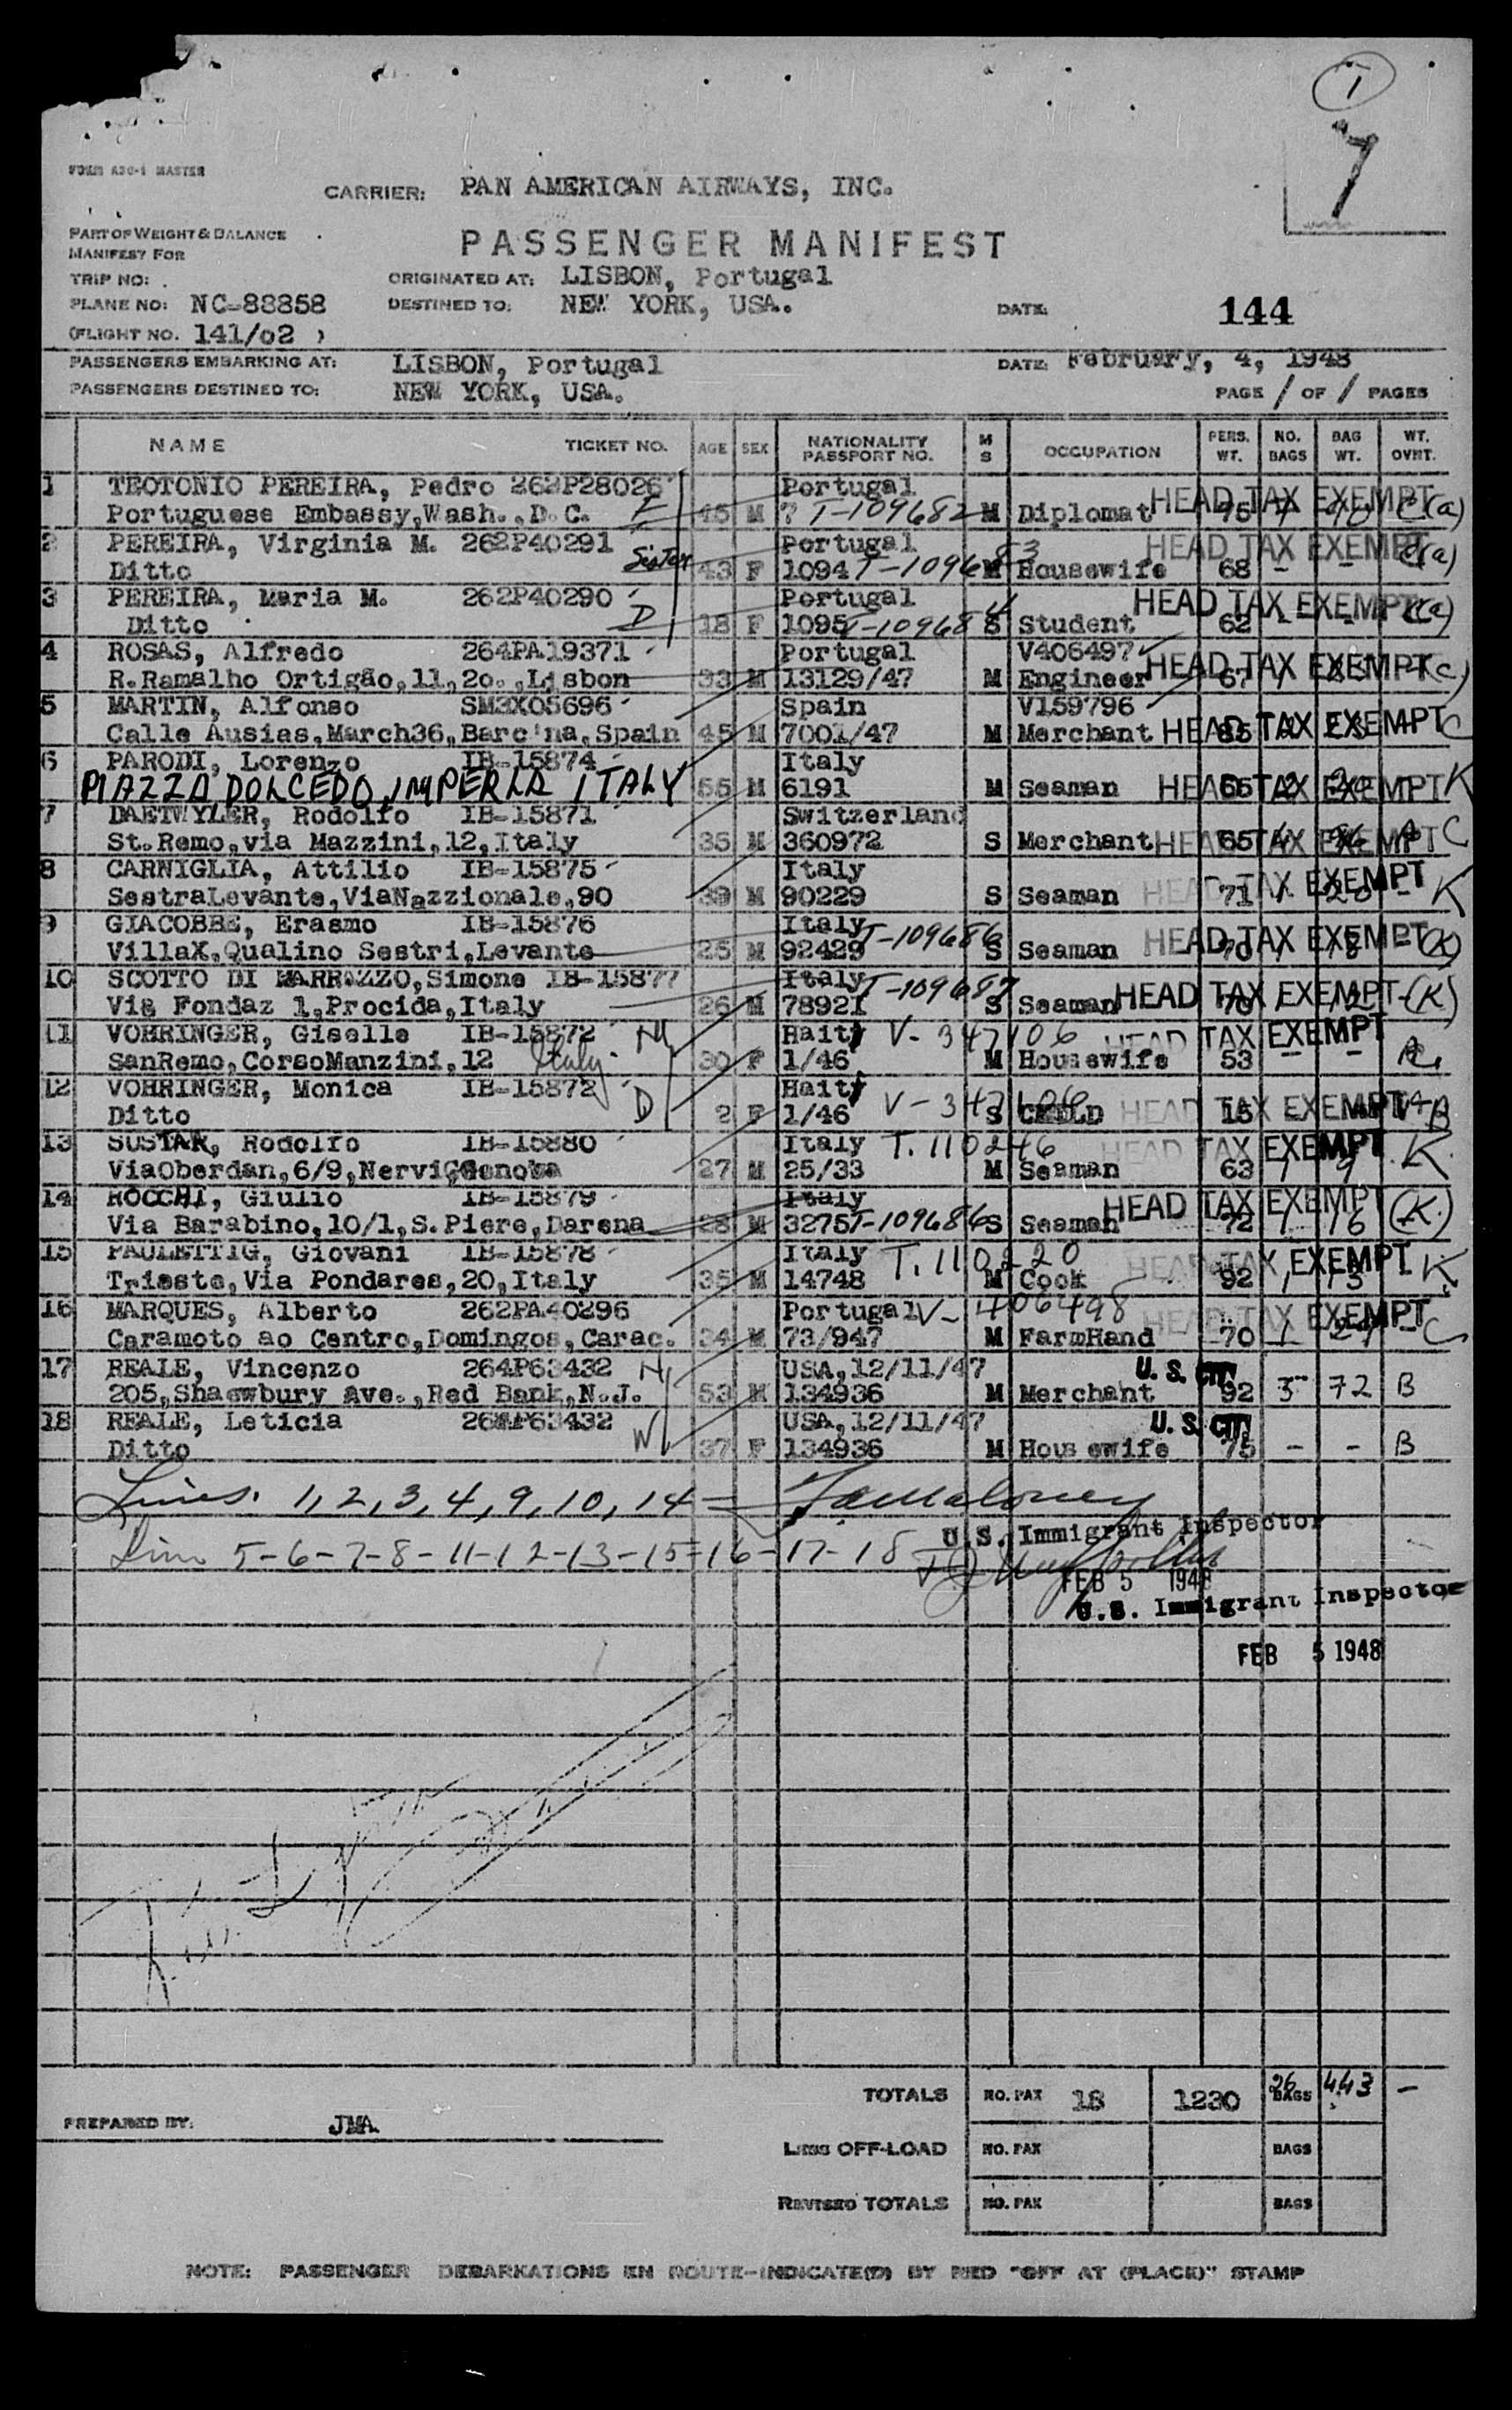 1
7
FORM ASC-1 MASTER
CARRIER: PAN AMERICAN AIRWAYS, INC.
PART OF WEIGHT & BALANCE
MANIFEST FOR
PASSENGER MANIFEST
TRIP NO: ORIGINATED AT: LISBON, Portugal
PLANE NO: NC-88858 DESTINED TO: NEW YORK, USA. DATE: 144
(FLIGHT NO. 141/02 )
PASSENGERS EMBARKING AT: LISBON, Portugal DATE: February, 4, 1948
PASSENGERS DESTINED TO: NEW YORK, USA. PAGE 1 OF 1 PAGES
NAME TICKET NO. AGE SEX NATIONALITY PASSPORT NO. M S OCCUPATION PERS. WT. NO. BAGS BAG WT. WT. OVHT.
1 TEOTONIO PEREIRA, Pedro 262P28026 Portugal HEAD TAX EXEMPT
Portuguese Embassy,Wash.,D.C. 45 M ? T-109682 M Diplomat 75 (a)
2 PEREIRA, Virginia M. 262P40291 Portugal HEAD TAX EXEMPT
Ditto Sister 43 F 1094 T-109683 M Housewife 68 - - (a)
3 PEREIRA, Maria M. 262P40290 Portugal HEAD TAX EXEMPT
Ditto D 18 F 1095 T-109684 S Student 62 - - (a)
4 ROSAS, Alfredo 264PA19371 Portugal V406497 HEAD TAX EXEMPT
R.Ramalho Ortigão,11,2o.,Lisbon 33 M 13129/47 M Engineer 67 1 C)
5 MARTIN, Alfonso SM3X05696 Spain V159796
Calle Ausias,March36,Barc'na,Spain 45 M 7001/47 M Merchant 85 HEAD TAX EXEMPT C
6 PARODI, Lorenzo IB-15874 Italy
PIAZZA DOLCEDO, IMPERIA ITALY 55 M 6191 M Seaman HEAD TAX EXEMPT K
7 DAETWYLER, Rodolfo IB-15871 Switzerland
St.Remo,via Mazzini,12,Italy 35 M 360972 S Merchant 65 HEAD TAX EXEMPT C
8 CARNIGLIA, Attilio IB-15875 Italy
SestraLevante,ViaNazzionale,90 39 M 90229 S Seaman HEAD TAX EXEMPT 71 1 20 - K
9 GIACOBBE, Erasmo IB-15876 Italy T-109686
VillaX,Qualino Sestri,Levante 25 M 92429 S Seaman HEAD TAX EXEMPT 70 1 18 - (K)
10 SCOTTO DI MARRAZZO,Simone IB-15877 Italy T-109687
Via Fondaz 1,Procida,Italy 26 M 78921 S Seaman HEAD TAX EXEMPT 70 1 12 - (K)
11 VOHRINGER, Giselle IB-15872 Haity V-347106 HEAD TAX EXEMPT
SanRemo,CorsoManzini,12 Italy 30 F 1/46 M Housewife 53 - -
12 VOHRINGER, Monica IB-15872 Haity V-347106
Ditto D 2 F 1/46 S CHILD 15 HEAD TAX EXEMPT
13 SUSTAR, Rodolfo IB-15880 Italy T.110246 HEAD TAX EXEMPT K
ViaOberdan,6/9,Nervi,Genova 27 M 25/33 M Seaman 63 1 9
14 ROCCHI, Giulio IB-15879 Italy HEAD TAX EXEMPT
Via Barabino,10/1,S.Piere,Darena 28 M 3275 T-109686 S Seaman 72 1 16 (K)
15 PAULETTIG, Giovani IB-15878 Italy T.110220
Trieste,Via Pondares,20,Italy 35 M 14748 M Cook HEAD TAX EXEMPT 92 1 13 K
16 MARQUES, Alberto 262PA40296 Portugal V-406498 HEAD TAX EXEMPT
Caramoto ao Centro,Domingos,Carac. 34 M 73/947 M FarmHand 70 1 29 - C
17 REALE, Vincenzo 264P63432 H USA,12/11/47 U.S. CIT
205,Shaewbury Ave.,Red Bank,N.J. 53 M 134936 M Merchant 92 3 72 B
18 REALE, Leticia 264P63432 USA,12/11/47 U.S. CIT
Ditto W 37 F 134936 M Housewife 75 - - B
Lines. 1, 2, 3, 4, 9, 10, 14 -
U.S. Immigrant Inspector
Line 5-6-7-8-11-12-13-15-16-17-18
FEB 5 1948
U.S. Immigrant Inspector
FEB 5 1948
TOTALS NO. PAX 18 1230 26 BAGS 443 -
PREPARED BY: JMA
LESS OFF-LOAD NO. PAX BAGS
REVISED TOTALS NO. PAX BAGS
NOTE: PASSENGER DEBARKATIONS EN ROUTE-INDICATE(D) BY RED "OFF AT (PLACE)" STAMP